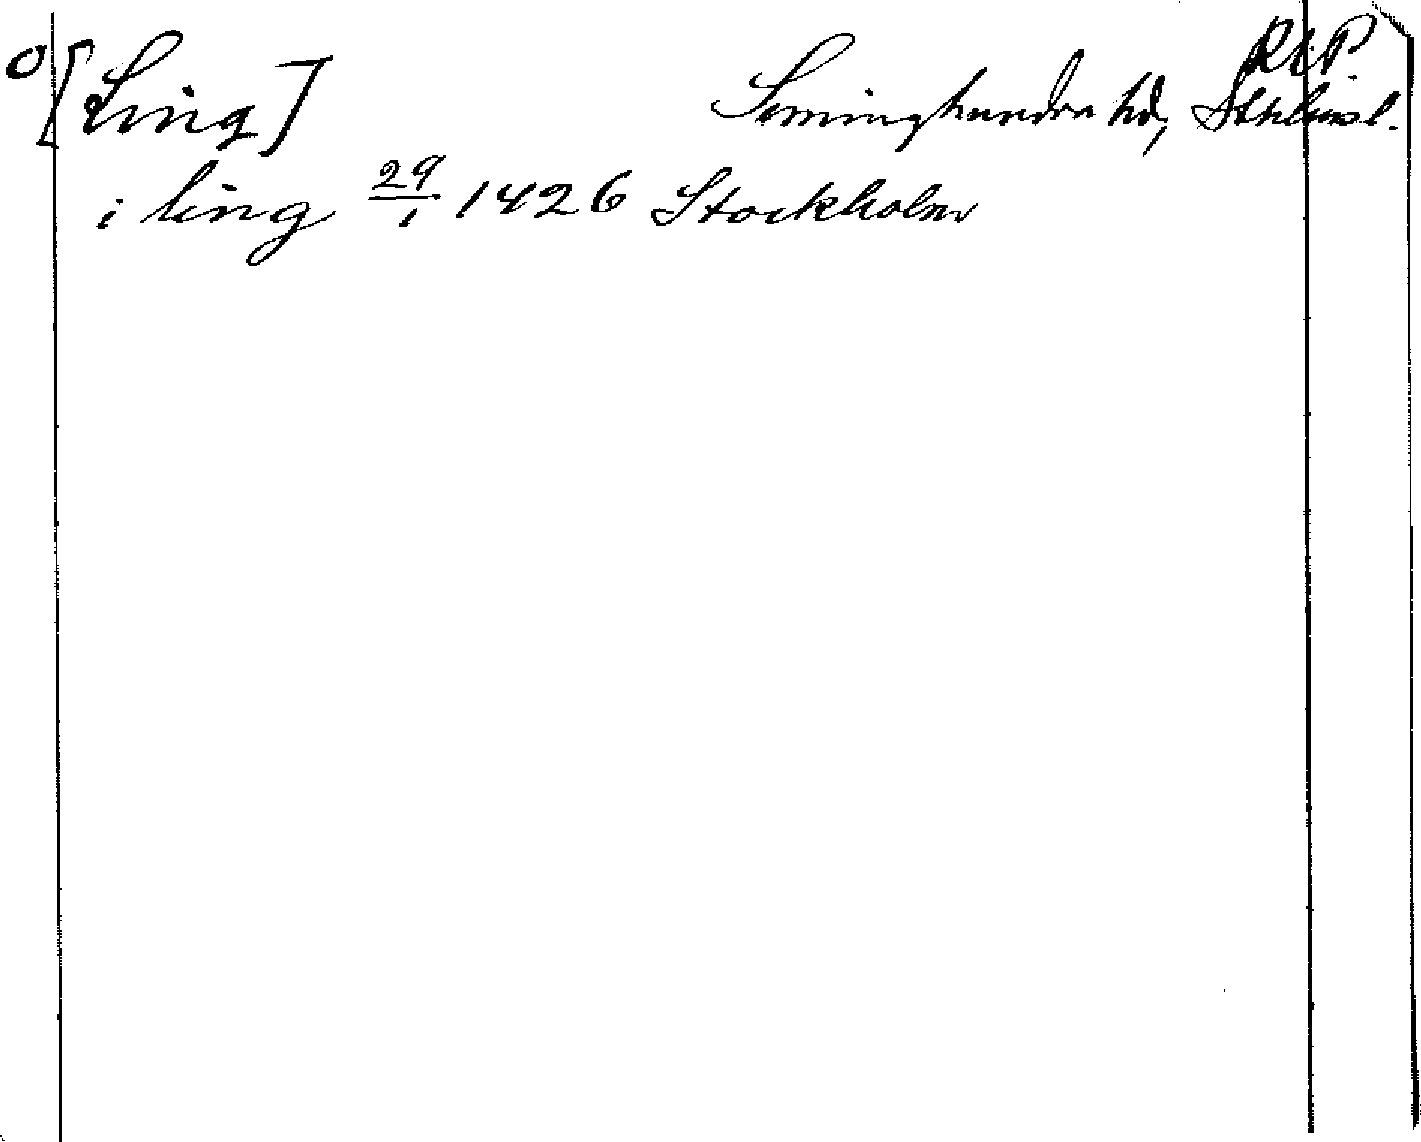 O [Ling] Seminghundra hd, Sthlmsl.
R&P.
i ling 29/1 1426 Stockholm